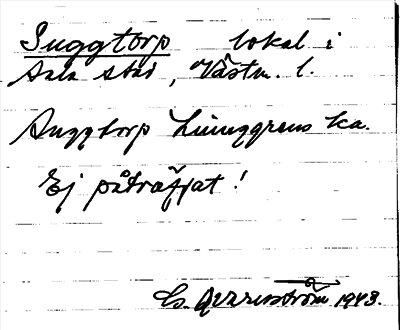 Suggtorp lokal i
Sala stad, Västm. l.
Suggtorp Ljunggrens ka.
Ej påträffat!
1943.